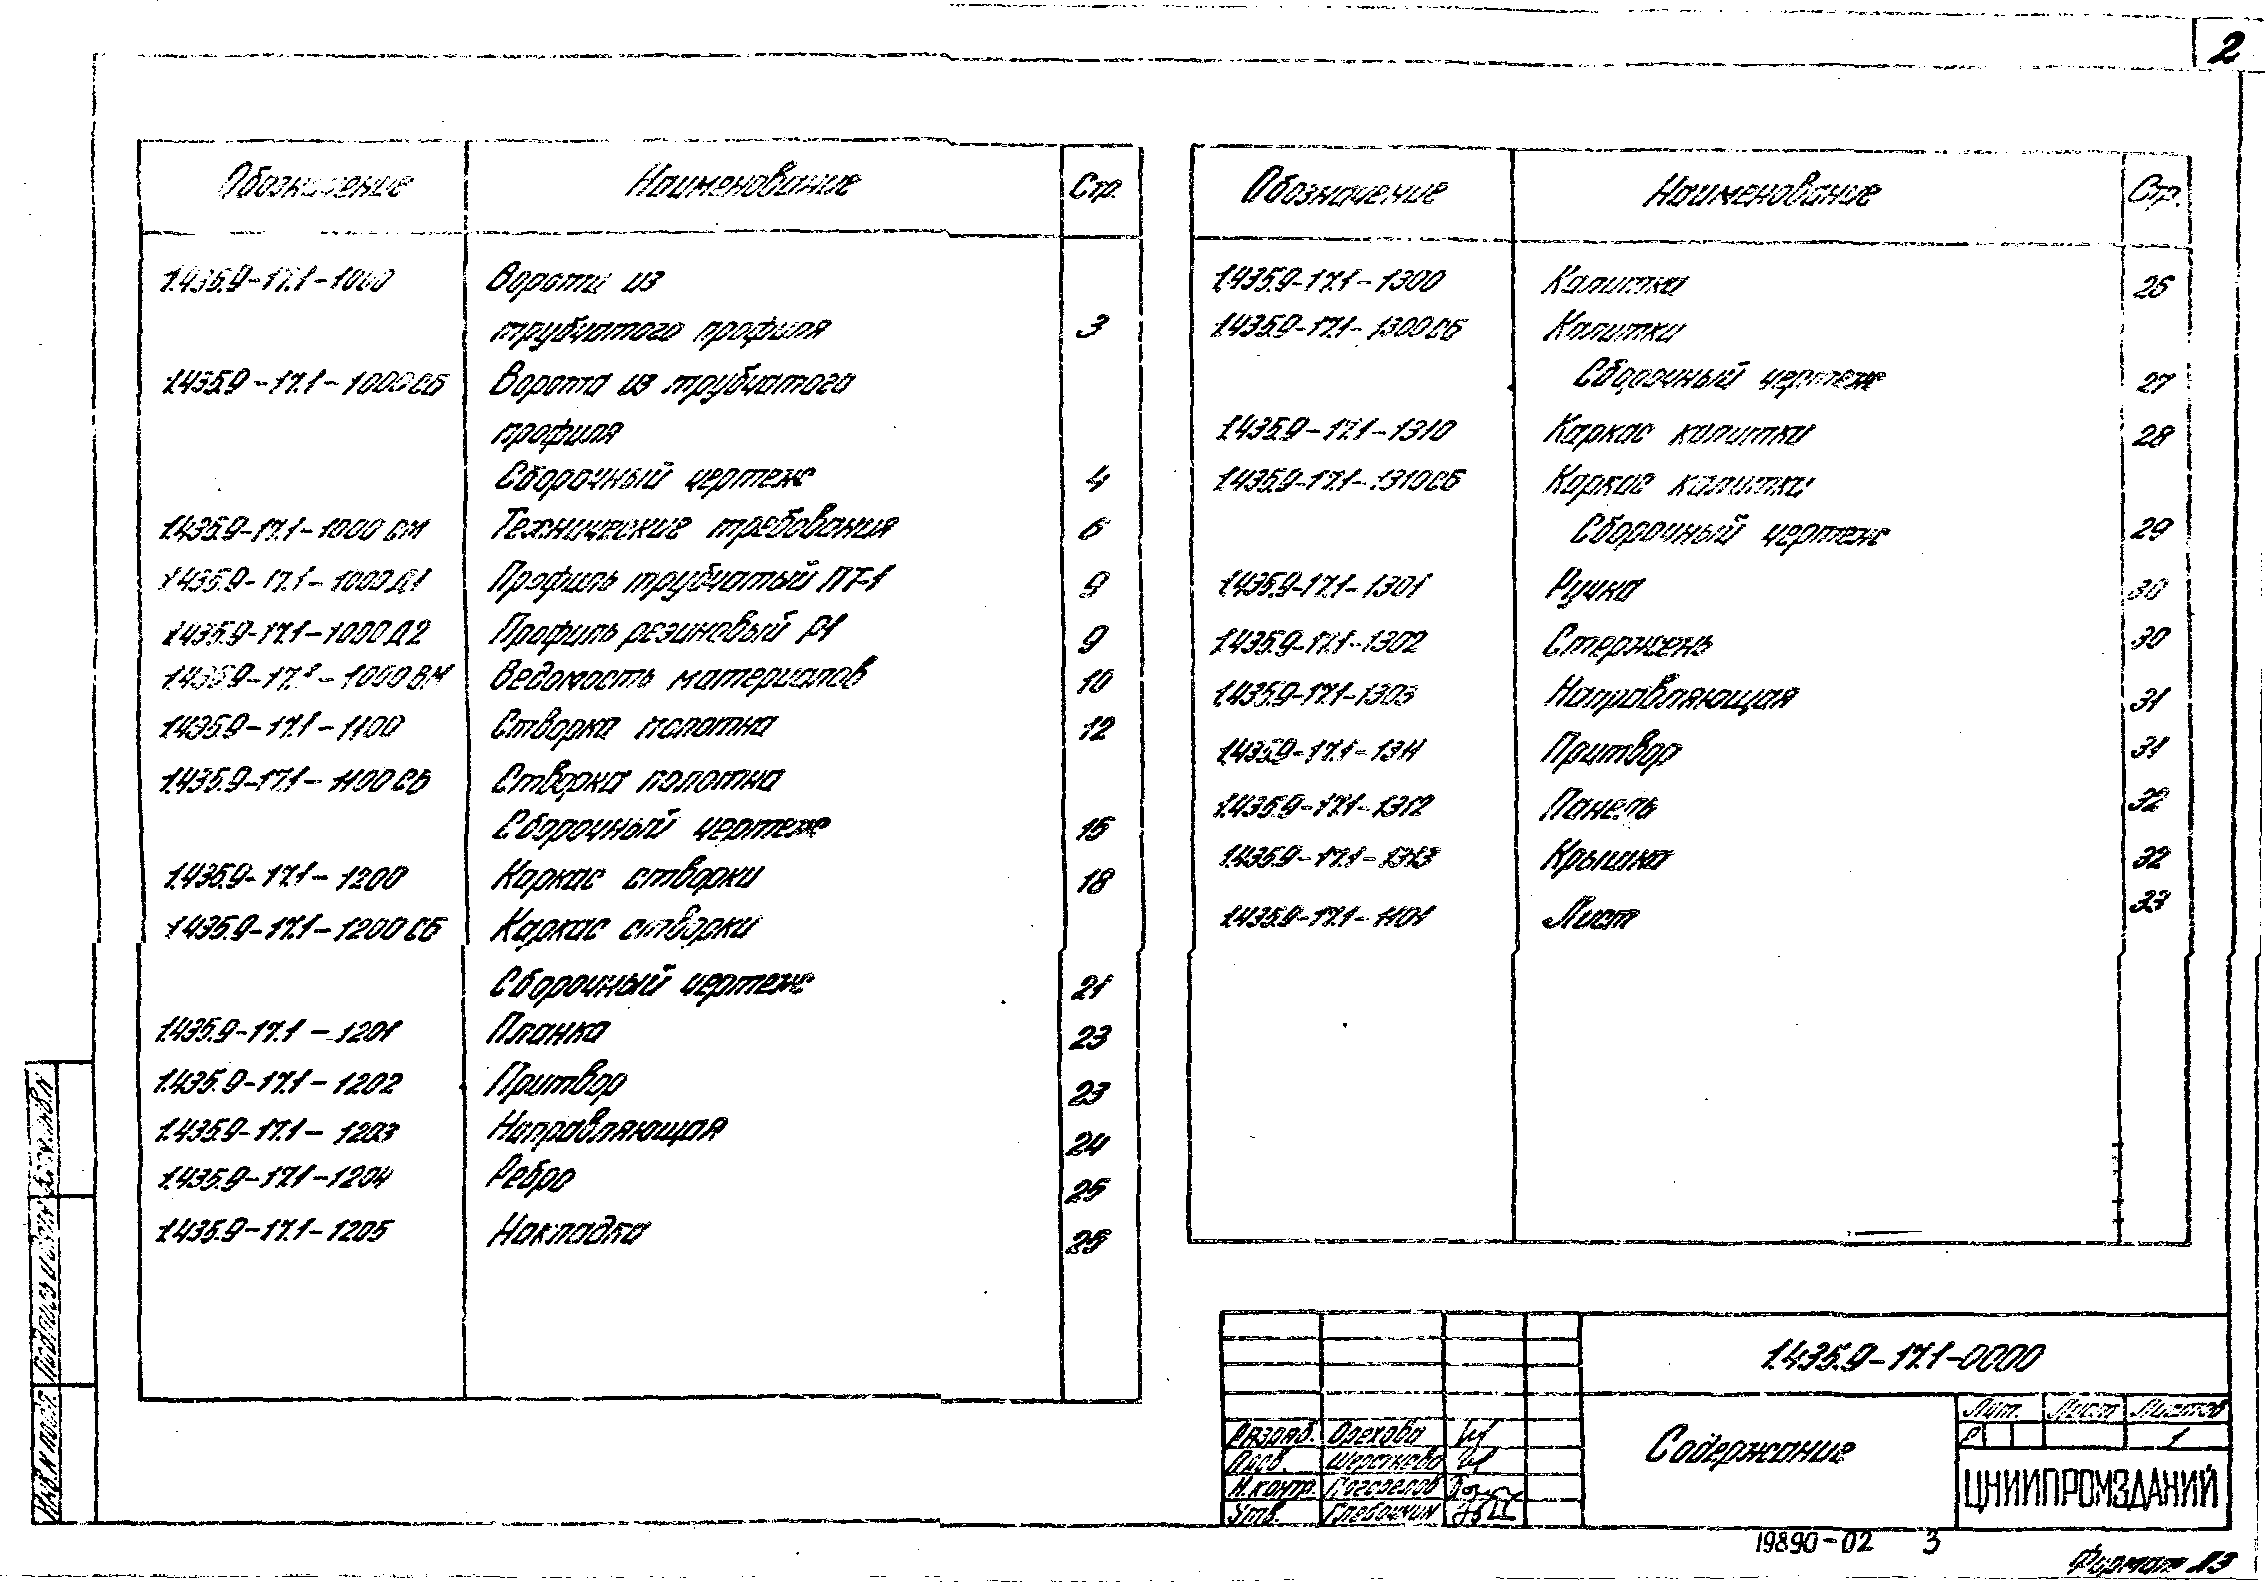 2
Обозначение Наименование Стр.
1.435.9-17.1-1000 Ворота из
трубчатого профиля 3
1.435.9-17.1-1000СБ Ворота из трубчатого
профиля
Сборочный чертеж 4
1.435.9-17.1-1000 Технические требования 6
1.435.9-17.1-1000Д1 Профиль трубчатый ПТ-1
1.435.9-17.1-1000Д2 Профиль резиновый Р1 9
1.435.9-17.1-1000ВМ Ведомость материалов 10
1.435.9-17.1-1100 Створка полотна 12
1.435.9-17.1-1100СБ Створка полотна
Сборочный чертеж 15
1.435.9-17.1-1200 Каркас створки 18
1.435.9-17.1-1200СБ Каркас створки
Сборочный чертеж 21
1.435.9-17.1-1201 Планка 23
1.435.9-17.1-1202 Притвор 23
1.435.9-17.1-1203 Направляющая 24
1.435.9-17.1-1204 Ребро 25
1.435.9-17.1-1205 Накладка 25
Обозначение Наименование Стр.
1.435.9-17.1-1300 Калитка 26
1.435.9-17.1-1300СБ Калитки
Сборочный чертеж 27
1.435.9-17.1-1310 Каркас калитки 28
1.435.9-17.1-1310СБ Каркас калитки
Сборочный чертеж 29
1.435.9-17.1-1301 Ручка 30
1.435.9-17.1-1302 Стержень 30
1.435.9-17.1-1303 Направляющая 31
1.435.9-17.1-1311 Притвор 31
1.435.9-17.1-1312 Панель 32
1.435.9-17.1-1313 Крышка 32
1.435.9-17.1-1101 Лист 33
1.435.9-17.1-0000
Содержание
Лит. Лист Листов
Р 1
ЦНИИПРОМЗДАНИЙ
Разраб. Орехова
Пров.
Н.контр. Погорелов
Утв.
19890-02 3
Формат А3
Взам. инв. N
Подпись и дата
Инв. N подл.